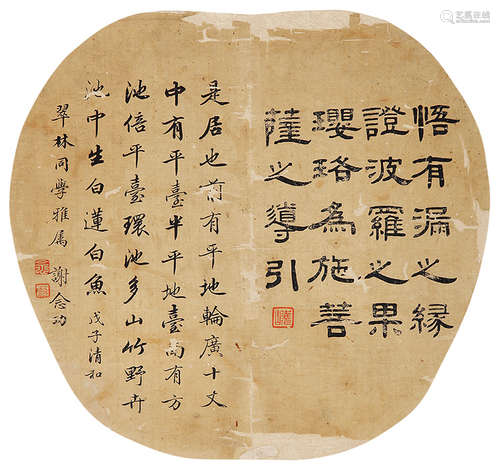 悟有漏之緣
證波羅之果
瓔珞為施善
薩之導引
是居也前有平地輪廣十丈
中有平臺半平地臺南有方
池倍平臺環池多山竹野卉
池中生白蓮白魚 戊子清和
翠林同學雅屬 謝念功